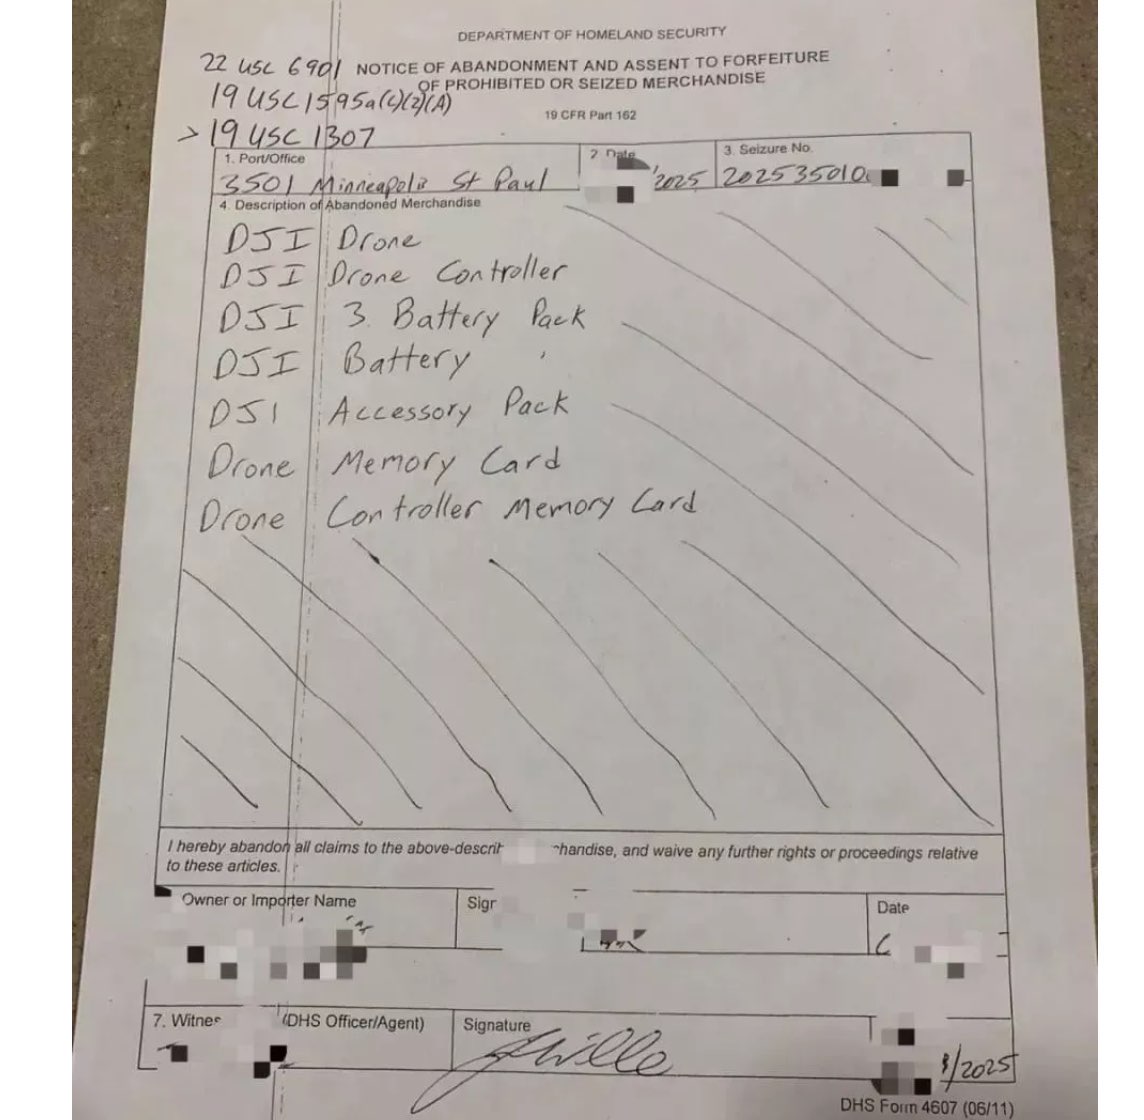 DEPARTMENT OF HOMELAND SECURITY
22 USC 6901 NOTICE OF ABANDONMENT AND ASSENT TO FORFEITURE
OF PROHIBITED OR SEIZED MERCHANDISE
19 USC 1595a(c)(2)(A)
19 CFR Part 162
> 19 USC 1307
1. Port/Office 2. Date 3. Seizure No.
3501 Minneapolis St Paul /2025 202535010
4. Description of Abandoned Merchandise
DJI Drone
DJI Drone Controller
DJI 3 Battery Pack
DJI Battery
DJI Accessory Pack
Drone Memory Card
Drone Controller Memory Card
I hereby abandon all claims to the above-descrit chandise, and waive any further rights or proceedings relative
to these articles.
Owner or Importer Name Sigr Date
7. Witnes (DHS Officer/Agent) Signature
/2025
DHS Form 4607 (06/11)